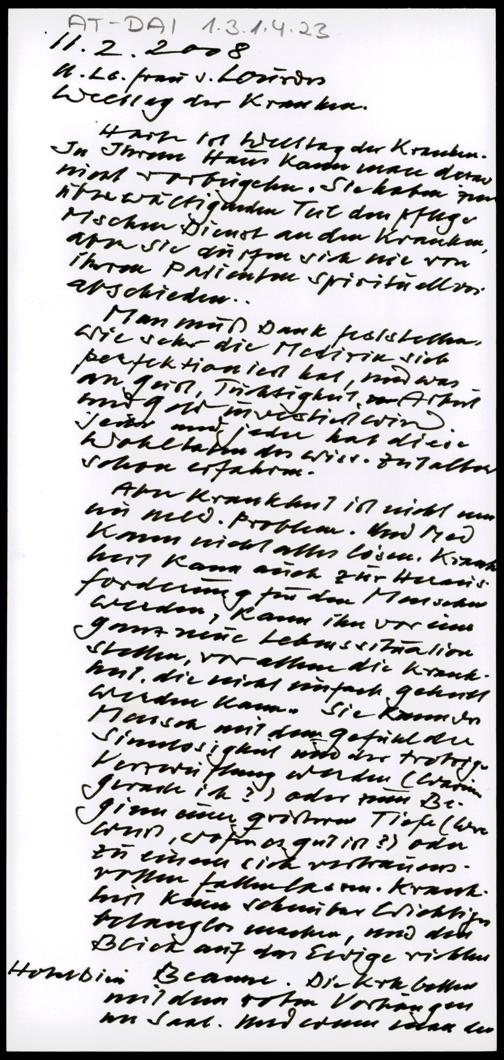 AT-DAI 1.3.1.4.23
11.2.2008
U. Lb. Frau v. Lourdes
Welttag der Kranken.
Heute ist Welttag der Kranken.
In Ihrem Haus kann man daran
nicht vorbeigehen. Sie haben zum
überwältigenden Teil den pflege
rischen Dienst an den Kranken,
aber sie dürfen sich nie von
ihren Patienten spirituell ver
abschieden..
Man muß Dank feststellen,
wie sehr die Medizin sich
perfektioniert hat, und was
an Geist, Tüchtigkeit, Arbeit
und Geld investiert wird.
Jeder und jede hat diese
Wohltaten des wiss. Zeitalters
schon erfahren.
Aber Krankheit ist nicht nur
ein med. Problem. Und Med
kann nicht alles lösen. Krank
heit kann auch zur Heraus
forderung für den Menschen
werden, kann ihn vor eine
ganz neue Lebenssituation
stellen, vor allem die Krank-
heit, die nicht einfach geheilt
werden kann. Sie kann der
Mensch mit dem Gefühl der
Sinnlosigkeit und der trotzige
Verzweiflung werden (Warum
gerade ich?) oder zum Be-
ginn einer größeren Tiefe (Wer
weiß, wofür es gut ist?) oder
zu einem sich vertrauens-
vollen fallen lassen. Krank-
heit kann scheinbar Wichtiges
belanglos machen, und den
Blick auf das Ewige richten
Hotel Dieu Beaune. Die Krkbetten
mit den roten Vorhängen
im Saal. Und wenn man den